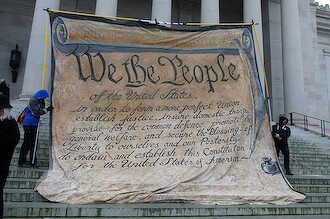 We the People
of the United States,
in order to form a more perfect Union,
establish Justice, insure domestic tranq
provide for the common defense, promote the
general welfare, and secure the Blessings of
Liberty to ourselves and our Posterity
do ordain and establish this Constitution
for the United States of America